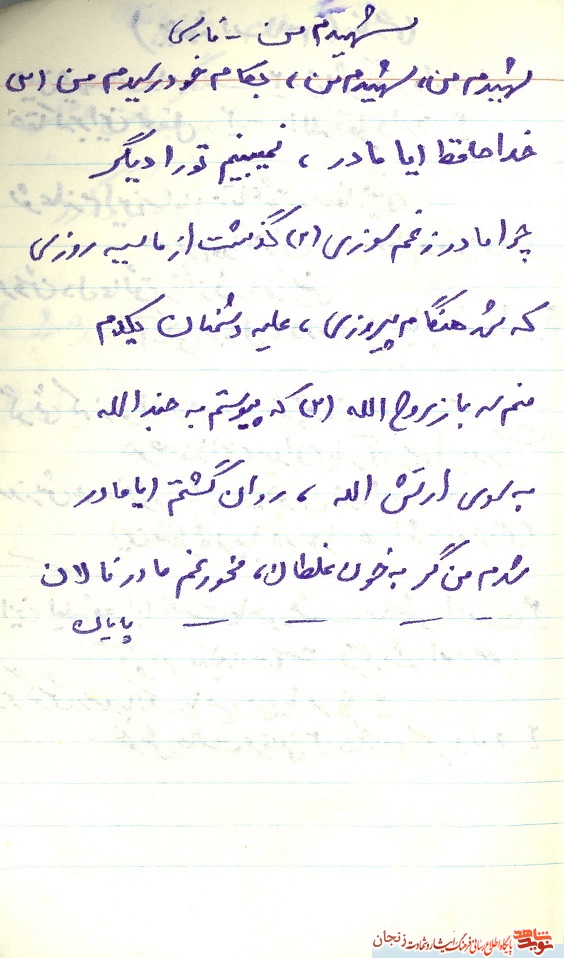 شهیدم من - فارسی
شهیدم من، شهیدم من، بکام خود رسیدم من (س)
خداحافظ ایا مادر، نمیبینم تو را دیگر
چرا مادر ز غم سوزی (س) گذشت از ما سیه روزی
که شد هنگام پیروزی، علیه دشمنان یکدم
منم سرباز روح الله (س) که پیوستم به جند الله
به سوی ارتش الله، روان گشتم ایا مادر
شدم من گر به خون غلطان، مخور غم مادر نالان
پایان
نوید شاهد
پایگاه اطلاع رسانی فرهنگ ایثار و شهادت زنجان